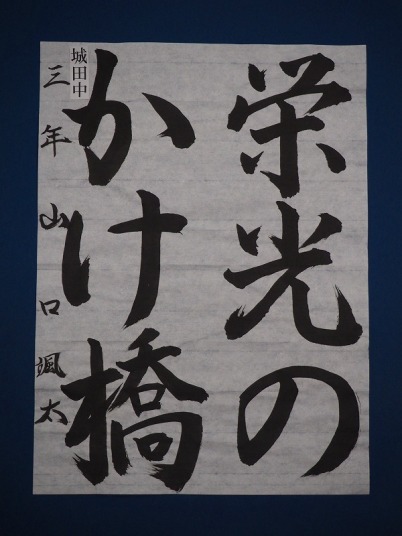 栄光の
かけ橋
城田中
三年 山口颯太